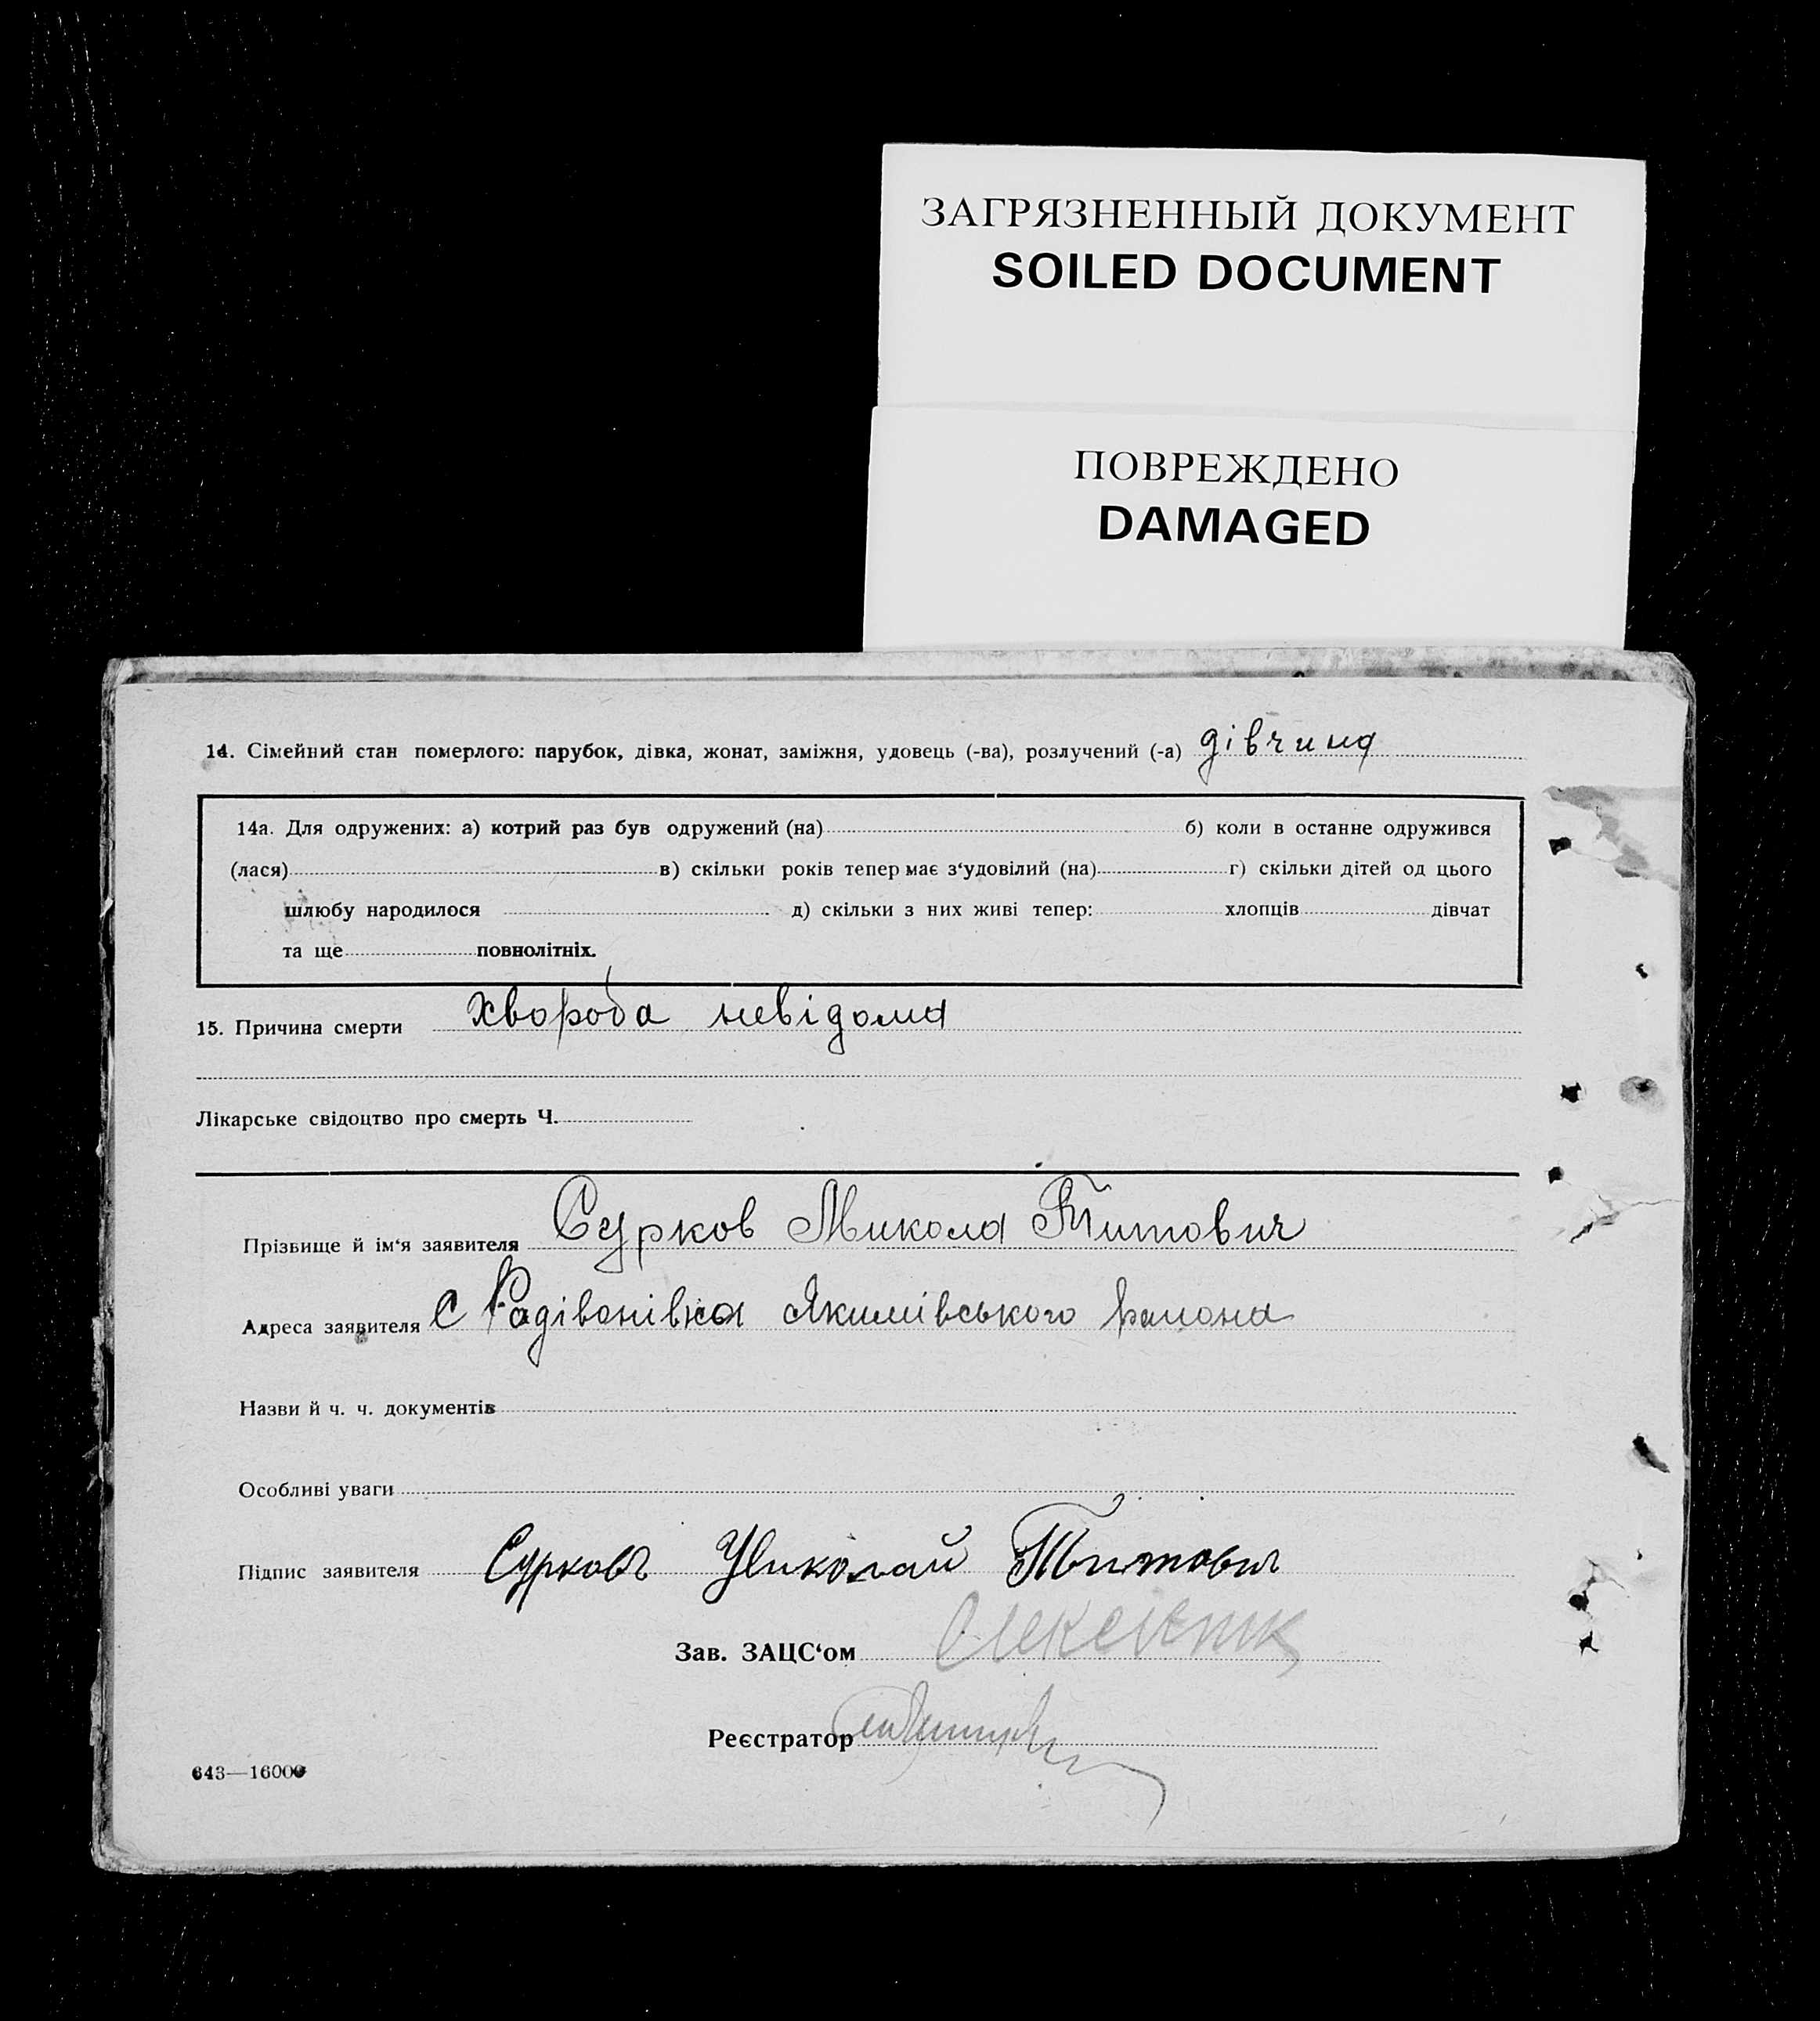 ЗАГРЯЗНЕННЫЙ ДОКУМЕНТ
SOILED DOCUMENT
ПОВРЕЖДЕНО
DAMAGED
14. Сімейний стан померлого: парубок, дівка, жонат, заміжня, удовець (-ва), розлучений (-а) дівчина
14а. Для одружених: а) котрий раз був одружений (на) б) коли в останне одружився
(лася) в) скільки років тепер має з‘удовілий (на) г) скільки дітей од цього
шлюбу народилося д) скільки з них живі тепер: хлопців дівчат
та ще повнолітніх.
15. Причина смерти хвороба невідома
Лікарське свідоцтво про смерть Ч.
Прізвище й ім‘я заявителя Сурков Микола Титович
Адреса заявителя С Радівонівка Якимівського района
Назви й ч. ч. документів
Особливі уваги
Підпис заявителя Сурковъ Николай Титович
Зав. ЗАЦС‘ом
Реєстратор
643—16000